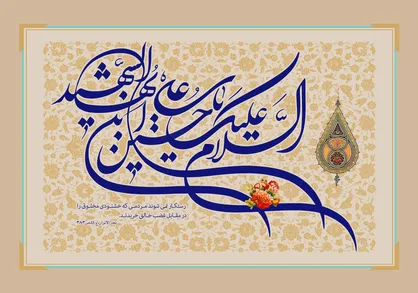 السلام علیک یا حسین بن علی ایها الشهید
رستگار نمی شوند مردمی که خشنودی مخلوق را
در مقابل غضب خالق خریدند.